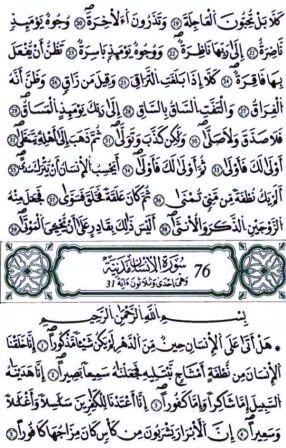 كَلَّا بَلْ تُحِبُّونَ الْعَاجِلَةَ وَتَذَرُونَ الْأَخِرَةَ وُجُوهٌ يَوْمَئِذٍ
نَّاضِرَةٌ إِلَىٰ رَبِّهَا نَاظِرَةٌ وَوُجُوهٌ يَوْمَئِذٍ بَاسِرَةٌ تَظُنُّ أَنْ يُّفْعَلَ
بِهَا فَاقِرَةٌ كَلَّا إِذَا بَلَغَتِ التَّرَاقِيَ وَقِيلَ مَن رَّاقٍ وَظَنَّ أَنَّهُ
الْفِرَاقُ وَالْتَفَّتِ السَّاقُ بِالسَّاقِ إِلَىٰ رَبِّكَ يَوْمَئِذٍ الْمَسَاقُ
فَلَا صَدَّقَ وَلَا صَلَّىٰ وَلَٰكِن كَذَّبَ وَتَوَلَّىٰ ثُمَّ ذَهَبَ إِلَىٰ أَهْلِهِ يَتَمَطَّىٰ
أَوْلَىٰ لَكَ فَأَوْلَىٰ ثُمَّ أَوْلَىٰ لَكَ فَأَوْلَىٰ أَيَحْسِبُ الْإِنسَانُ أَنْ يُّتْرَكَ سُدًى
أَلَمْ يَكُ نُطْفَةً مِّن مَّنِيٍّ تُمْنَىٰ ثُمَّ كَانَ عَلَقَةً فَخَلَقَ فَسَوَّىٰ فَجَعَلَ مِنْهُ
الزَّوْجَيْنِ الذَّكَرَ وَالْأُنثَىٰ أَلَيْسَ ذَٰلِكَ بِقَادِرٍ عَلَىٰ أَنْ يُّحْيِيَ الْمَوْتَىٰ
76 سُورَةُ الْإِنسَانِ مَدَنِيَّة
وَهِيَ إِحْدَى وَثَلَاثُونَ ءَايَة 31
بِسْمِ اللَّهِ الرَّحْمَٰنِ الرَّحِيمِ
هَلْ أَتَىٰ عَلَى الْإِنسَانِ حِينٌ مِّنَ الدَّهْرِ لَمْ يَكُن شَيْئًا مَّذْكُورًا إِنَّا خَلَقْنَا
الْإِنسَانَ مِن نُّطْفَةٍ أَمْشَاجٍ نَّبْتَلِيهِ فَجَعَلْنَاهُ سَمِيعًا بَصِيرًا إِنَّا هَدَيْنَاهُ
السَّبِيلَ إِمَّا شَاكِرًا وَإِمَّا كَفُورًا إِنَّا أَعْتَدْنَا لِلْكَافِرِينَ سَلَاسِلًا وَأَغْلَالًا
وَسَعِيرًا إِنَّ الْأَبْرَارَ يَشْرَبُونَ مِن كَأْسٍ كَانَ مِزَاجُهَا كَافُورًا